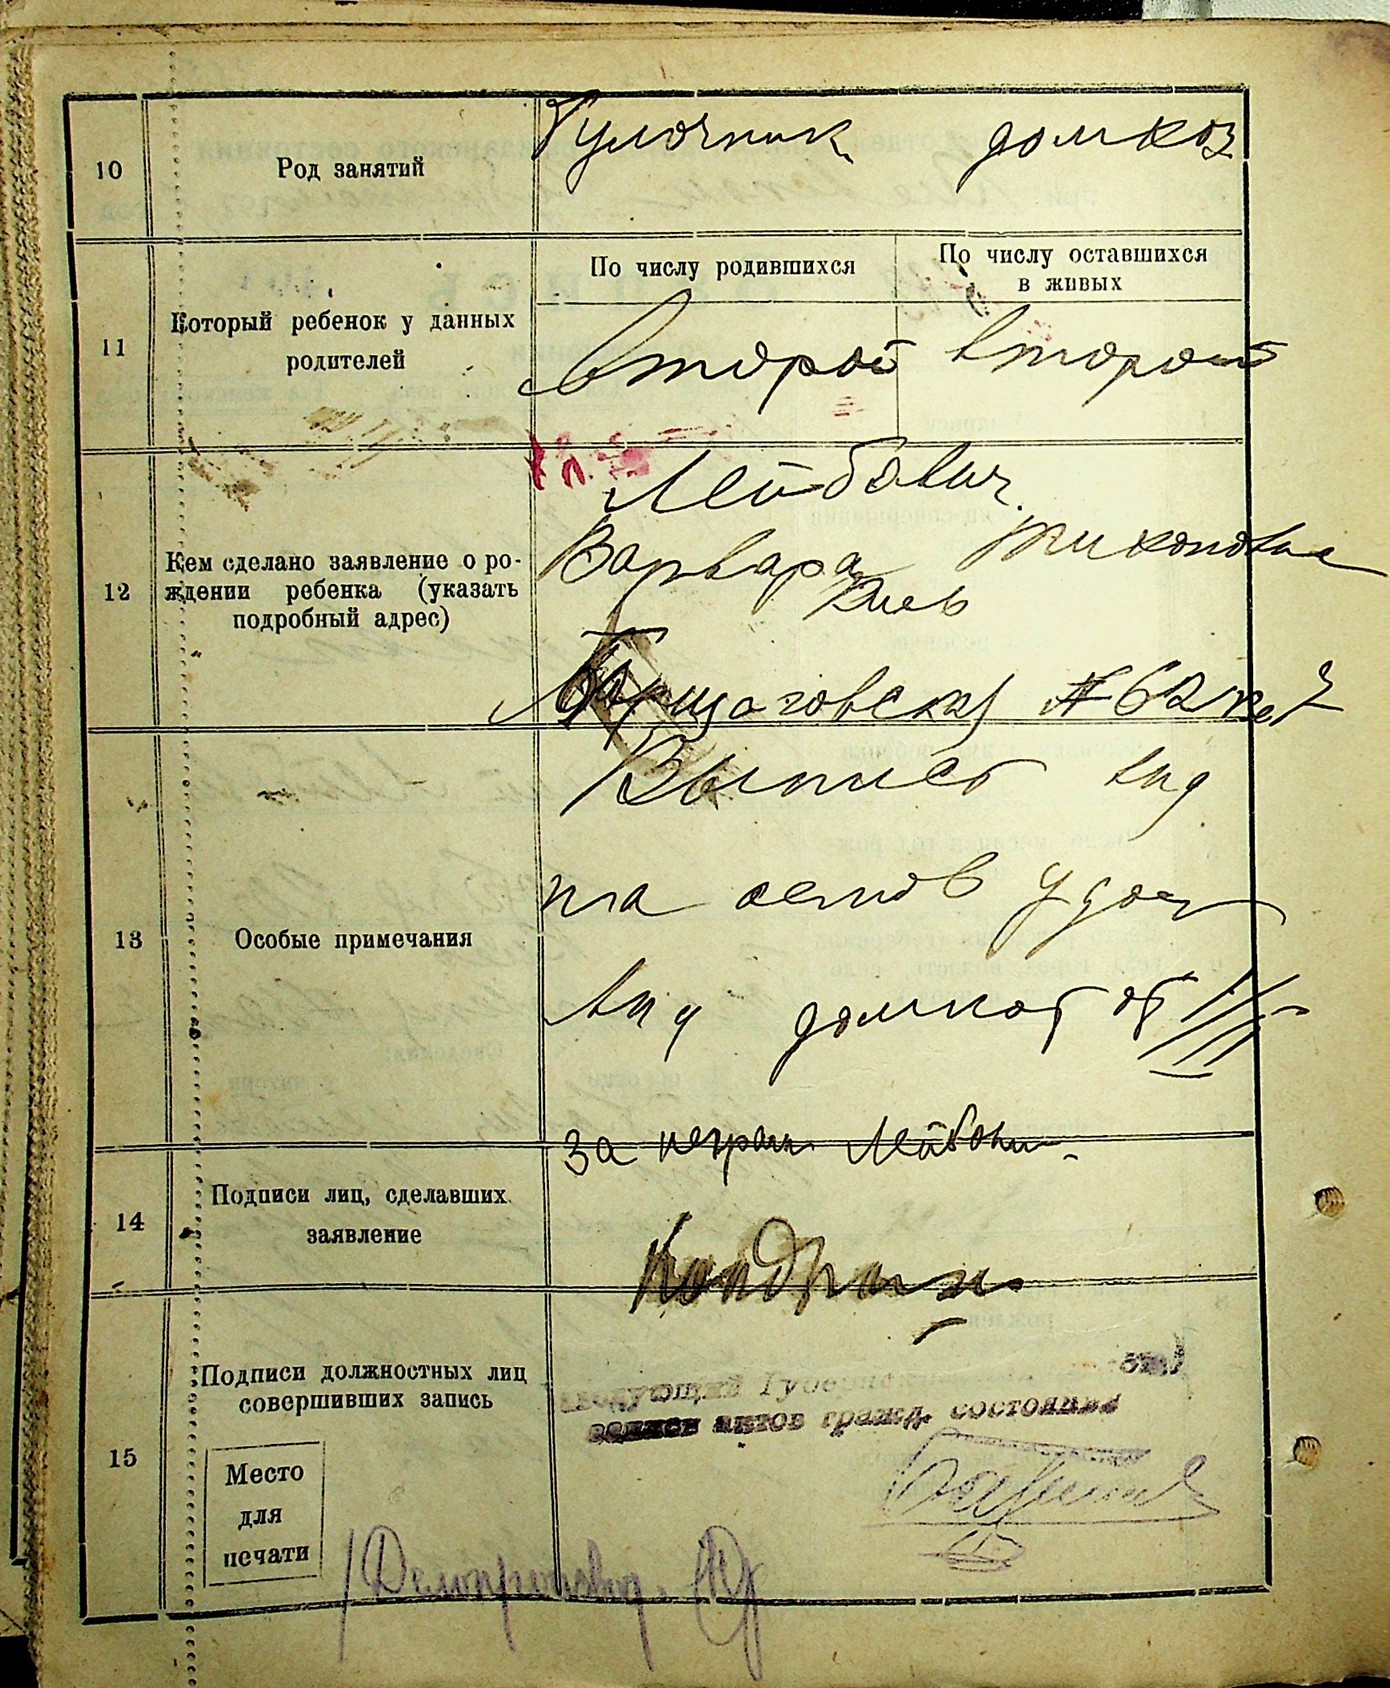 10
Род занятий
домхоз
11
Который ребенок у данных
родителей
По числу родившихся
По числу оставшихся
в живых
Второй второй
12
Кем сделано заявление о ро-
ждении ребенка (указать
подробный адрес)
Лейбович
Варвара Тихоновна
Киев
Борщаговская № 62 кв 7
13
Особые примечания
Выпись выд
на основ удост
выд домком от
14
Подписи лиц, сделавших
заявление
за неграм Лейбович
Кондрат
15
Подписи должностных лиц
совершивших запись
Место
для
печати
Заведующий Губернским
записи актов гражд. состояния